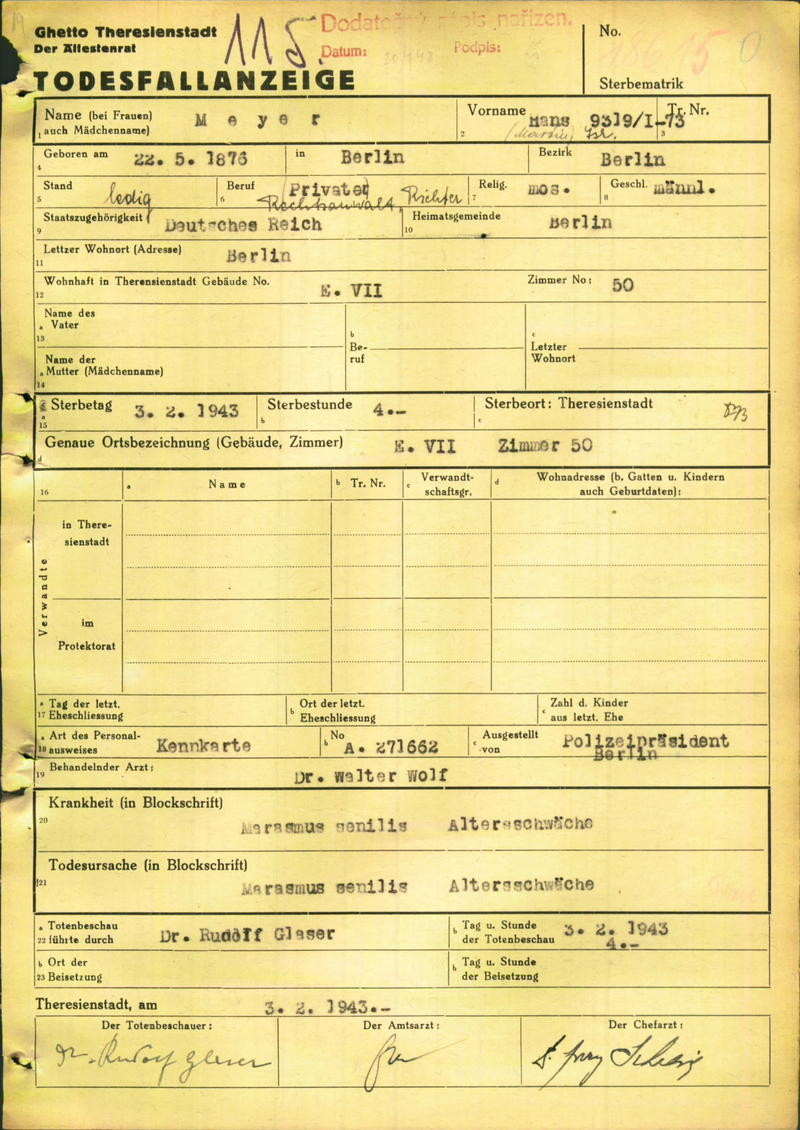 Ghetto Theresienstadt
Der Ältestenrat
115
Datum:
Podpis:
No.
TODESFALLANZEIGE
Sterbematrik
Name (bei Frauen) auch Mädchenname) Meyer
Vorname Hans
Tr. Nr. 9319/I-73
1 2 3
4 Geboren am 22. 5. 1876 in Berlin Bezirk Berlin
5 Stand ledig
6 Beruf Privater
Rechtsanwalt Richter
7 Relig. mos.
8 Geschl. männl.
9 Staatszugehörigkeit Deutsches Reich
10 Heimatsgemeinde Berlin
11 Lettzer Wohnort (Adresse) Berlin
12 Wohnhaft in Therensienstadt Gebäude No. E. VII Zimmer No: 50
13 a Name des Vater
b Be-ruf
c Letzter Wohnort
14 a Name der Mutter (Mädchenname)
15 a Sterbetag 3. 2. 1943
b Sterbestunde 4.-
c Sterbeort: Theresienstadt
d Genaue Ortsbezeichnung (Gebäude, Zimmer) E. VII Zimmer 50
16 a Name
b Tr. Nr.
c Verwandt-schaftsgr.
d Wohnadresse (b. Gatten u. Kindern auch Geburtdaten):
Verwandte
in There-
sienstadt
im
Protektorat
17 a Tag der letzt. Eheschliessung
b Ort der letzt. Eheschliessung
c Zahl d. Kinder aus letzt. Ehe
18 a Art des Personal-ausweises Kennkarte
b No A. 271662
c Ausgestellt von Polizeipräsident
Berlin
19 Behandelnder Arzt: Dr. Walter Wolf
Krankheit (in Blockschrift)
20 Marasmus senilis Altersschwäche
Todesursache (in Blockschrift)
21 Marasmus senilis Altersschwäche
22 a Totenbeschau führte durch Dr. Rudolf Glaser
b Tag u. Stunde der Totenbeschau 3. 2. 1943
4.-
23 b Ort der Beisetzung
b Tag u. Stunde der Beisetzung
Theresienstadt, am 3. 2. 1943.-
Der Totenbeschauer: Der Amtsarzt: Der Chefarzt:
Dr. Rudolf Glaser